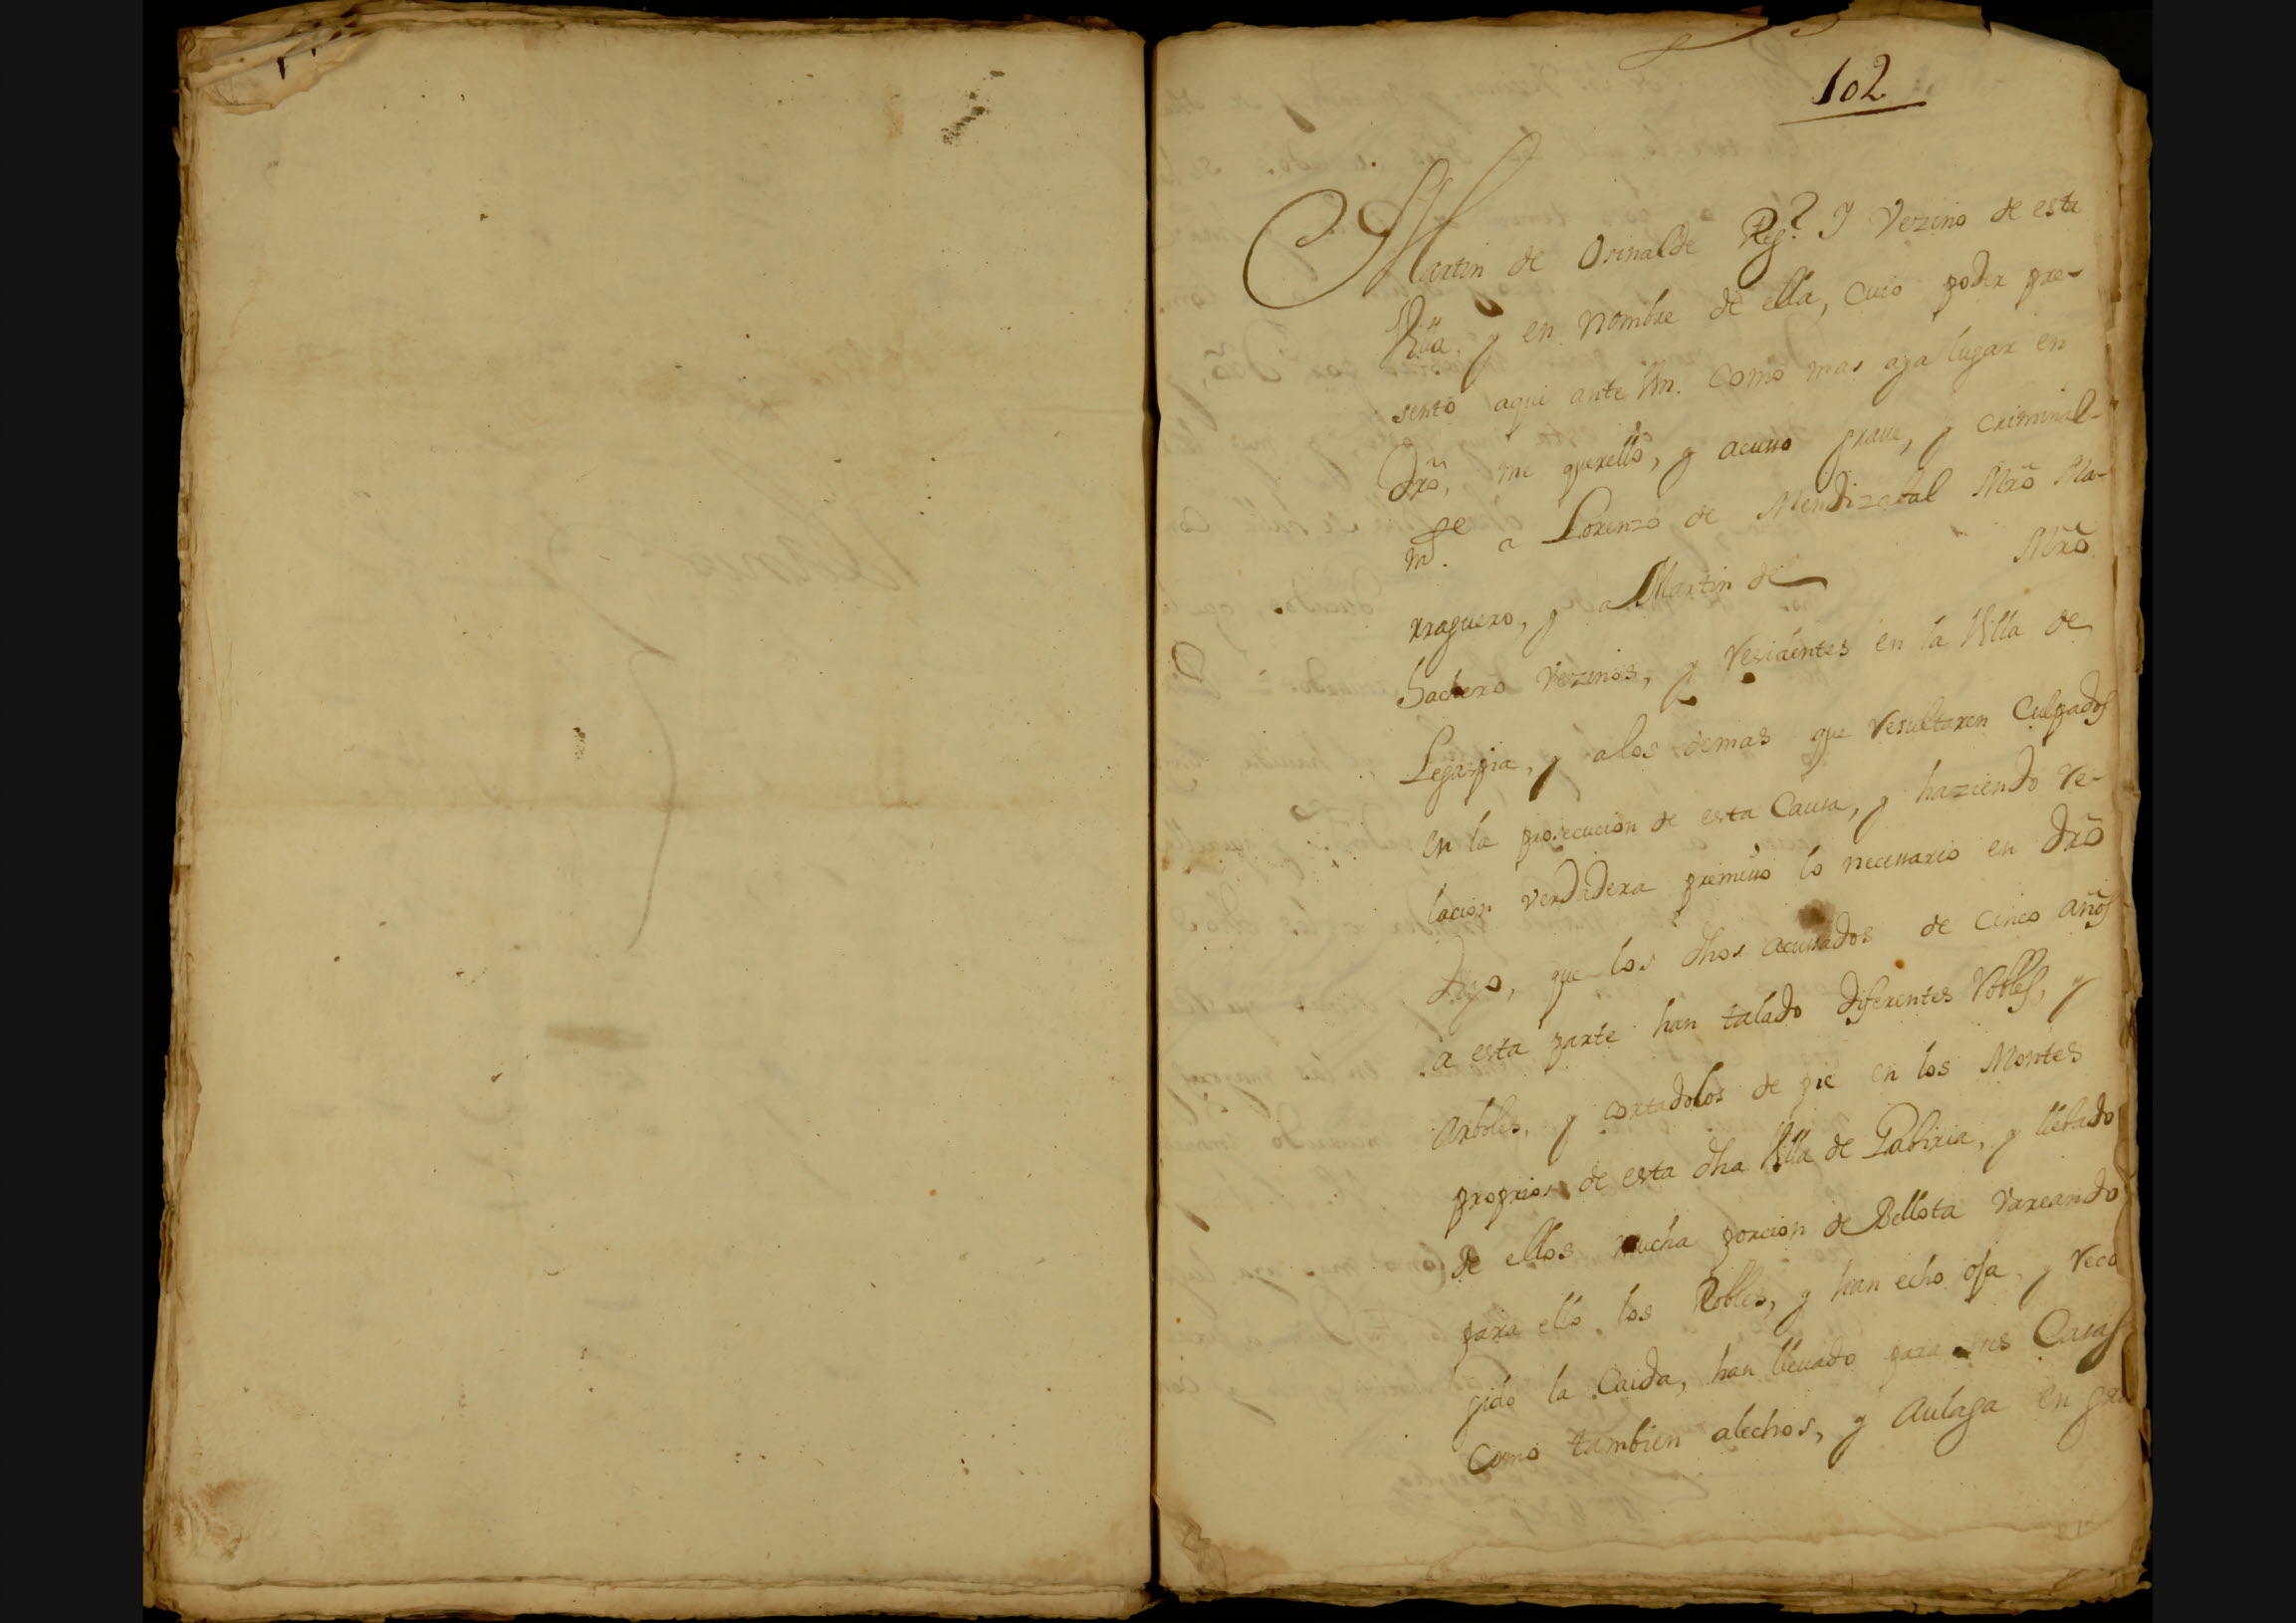 102
Martin de Osinalde Regr. y Vezino de esta
Villa, y en nombre de ella, cuio poder pre-
sento aqui ante Vm. como mas aya lugar en
dro, me querello, y acusso graue, y criminal-
mte. a Lorenzo de Mendizabal Mro Ma-
rraguero, y a Martin de Mro
hachero Vezinos, y residentes en la Villa de
Legazpia, y a los demas que resultaren Culpados
en la prosecucion de esta Caussa, y haziendo re-
lacion verdadera premisso lo necessario en dro
Digo, que los dhos acussados de cinco años
a esta parte han talado diferentes robles, y
arboles, y cortadolos de pie en los Montes
proprios de esta dha Villa de Gabiria, y llebado
de ellos mucha porcion de Bellota vareando
para ello los Robles, y han echo oja, y reco
gido la caida, han lleuado para sus Casas
Como tambien alechos, y aulaga en gra